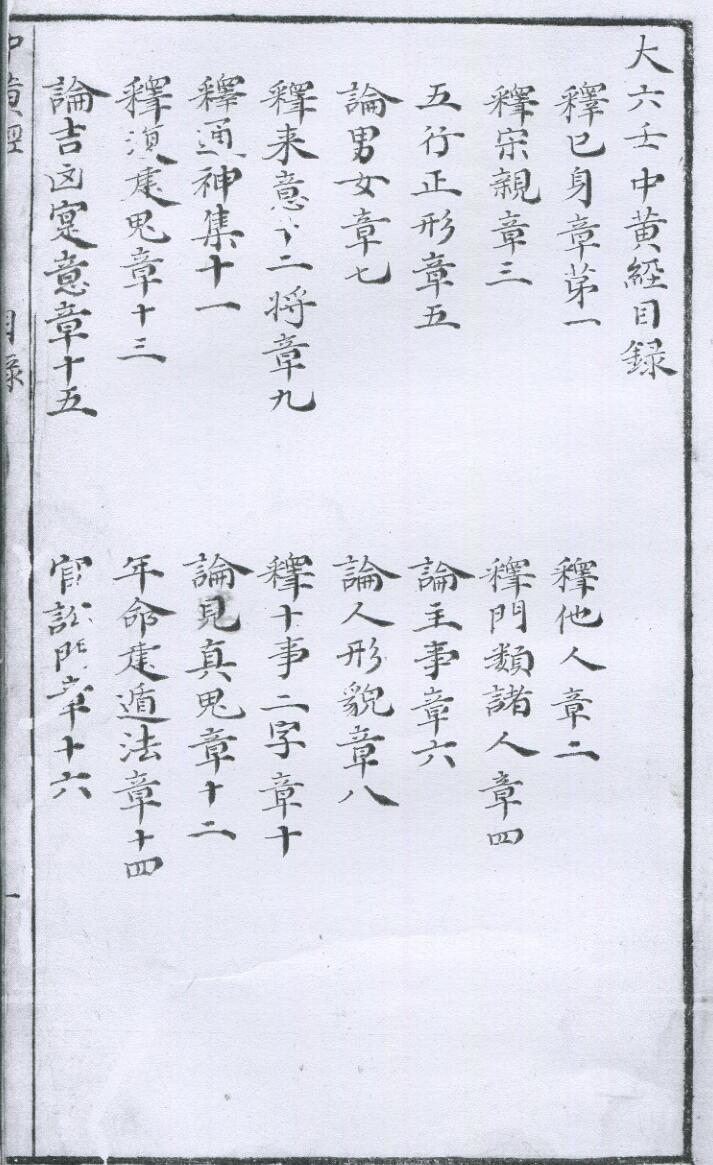 大六壬中黄經目録
釋已身章苐一
釋他人章二
釋宗親章三
釋門類諸人章四
五行正形章五
論主事章六
論男女章七
論人形貌章八
釋来意十二將章九
釋十事二字章十
釋通神集十一
論見真鬼章十二
釋復建鬼章十三
年命建遁法章十四
論吉凶寔意章十五
官訟門章十六
中黄經
目録
一